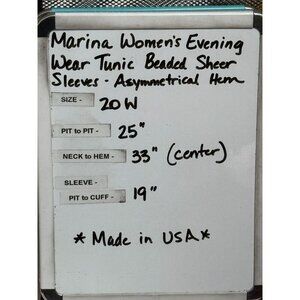 Marina Women's Evening
Wear Tunic Beaded Sheer
Sleeves - Asymmetrical Hem
SIZE - 20 W
PIT to PIT - 25"
NECK to HEM - 33" (center)
SLEEVE -
PIT to CUFF - 19"
* Made in USA *